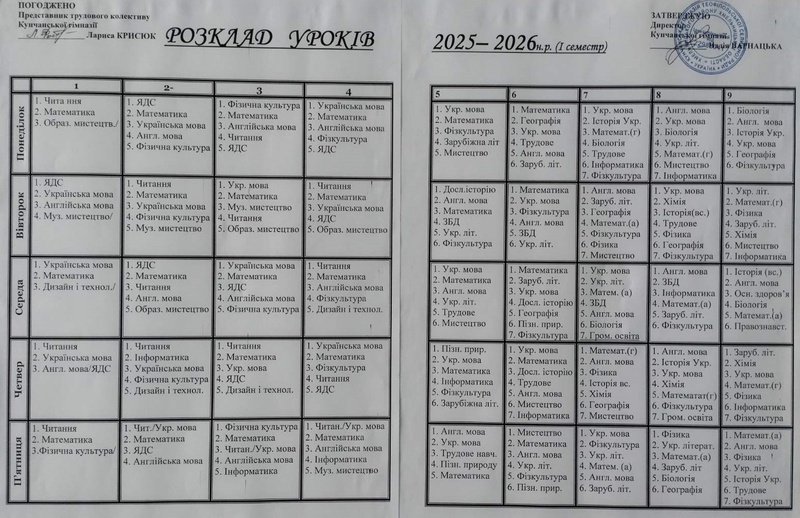 ПОГОДЖЕНО
Представник трудового колективу
Кунчанської гімназії
Лариса КРИСЮК
РОЗКЛАД УРОКІВ
2025– 2026 н.р. (І семестр)
ЗАТВЕРДЖУЮ
Директор
Кунчанської гімназії
Надія ВАРНАЦЬКА
1 2- 3 4
Понеділок
1. Чита ння
2. Математика
3. Образ. мистецтв./
1. ЯДС
2. Математика
3. Українська мова
4. Англ. мова
5. Фізична культура
1. Фізична культура
2. Математика
3. Англійська мова
4. Читання
5. ЯДС
1. Українська мова
2. Математика
3. Англійська мова
4. Фізкультура
5. ЯДС
Вівторок
1. ЯДС
2. Українська мова
3. Англійська мова
4. Муз. мистецтво/
1. Читання
2. Математика
3. Українська мова
4. Фізична культура
5. Муз. мистецтво
1. Укр. мова
2. Математика
3. Муз. мистецтво
4. Читання
5. Образ. мистецтво
1. Читання
2. Математика
3. Українська мова
4. ЯДС
5. Образ. мистецтво
Середа
1. Українська мова
2. Математика
3. Дизайн і технол./
1. ЯДС
2. Математика
3. Читання
4. Англ. мова
5. Образ. мистецтво
1. Українська мова
2. Математика
3. ЯДС
4. Англійська мова
5. Фізична культура
1. Читання
2. Математика
3. Англійська мова
4. Фізкультура
5. Дизайн і технол.
Четвер
1. Читання
2. Українська мова
3. Англ. мова/ЯДС
1. Читання
2. Інформатика
3. Українська мова
4. Фізична культура
5. Дизайн і технол.
1. Читання
2. Математика
3. Укр. мова
4. ЯДС
5. Дизайн і технол.
1. Українська мова
2. Математика
3. Фізкультура
4. Читання
5. ЯДС
П'ятниця
1. Читання
2. Математика
3.Фізична культура/
1. Чит./Укр. мова
2. Математика
3. ЯДС
4. Англійська мова
1. Фізична культура
2. Математика
3. Читан./Укр. мова
4. Англійська мова
5. Інформатика
1. Читан./Укр. мова
2. Математика
3. Англійська мова
4. Інформатика
5. Муз. мистецтво
5 6 7 8 9
1. Укр. мова
2. Математика
3. Фізкультура
4. Зарубіжна літ
5. Мистецтво
1. Математика
2. Географія
3. Укр. мова
4. Трудове
5. Англ. мова
6. Заруб. літ.
1. Укр. мова
2. Історія Укр.
3. Математ.(г)
4. Біологія
5. Трудове
6. Інформатика
7. Фізкультура
1. Англ. мова
2. Укр. мова
3. Біологія
4. Укр. літ.
5. Математ.(г)
6. Мистецтво
7. Інформатика
1. Біологія
2. Англ. мова
3. Історія Укр.
4. Укр. мова
5. Географія
6. Фізкультура
1. Досл.історію
2. Англ. мова
3. Математика
4. ЗБД
5. Укр. літ.
6. Фізкультура
1. Математика
2. Укр. мова
3. Фізкультура
4. Англ. мова
5. ЗБД
6. Укр. літ.
1. Англ. мова
2. Заруб. літ.
3. Географія
4. Математ.(а)
5. Фізкультура
6. Фізика
7. Мистецтво
1. Укр. мова
2. Хімія
3. Історія(вс.)
4. Трудове
5. Фізика
6. Географія
7. Фізкультура
1. Укр. літ.
2. Математ.(г)
3. Фізика
4. Заруб. літ.
5. Хімія
6. Мистецтво
7. Інформатика
1. Укр. мова
2. Математика
3. Англ. мова
4. Укр. літ.
5. Трудове
6. Мистецтво
1. Математика
2. Заруб. літ.
3. Укр. мова
4. Досл. історію
5. Географія
6. Пізн. прир.
7. Фізкультура
1. Укр. мова
2. Укр. літ.
3. Матем. (а)
4. ЗБД
5. Англ. мова
6. Біологія
7. Гром. освіта
1. Англ. мова
2. ЗБД
3. Інформатика
4. Математ.(а)
5. Заруб. літ.
6. Фізкультура
1. Історія (вс.)
2. Англ. мова
3. Осн. здоров'я
4. Біологія
5. Математ.(а)
6. Правознавст.
1. Пізн. прир.
2. Укр. мова
3. Математика
4. Інформатика
5. Фізкультура
6. Зарубіжна літ.
1. Укр. мова
2. Математика
3. Досл. історію
4. Трудове
5. Англ. мова
6. Мистецтво
7. Інформатика
1. Математ.(г)
2. Англ. мова
3. Фізика
4. Історія вс.
5. Хімія
6. Географія
7. Мистецтво
1. Англ. мова
2. Історія Укр.
3. Укр. мова
4. Хімія
5. Математат(г)
6. Фізкультура
7. Гром. освіта
1. Заруб. літ.
2. Хімія
3. Укр. мова
4. Математ.(г)
5. Фізика
6. Інформатика
7. Фізкультура
1. Англ. мова
2. Укр. мова
3. Трудове навч.
4. Пізн. природу
5. Математика
1. Мистецтво
2. Математика
3. Англ. мова
4. Укр. літ.
5. Фізкультура
6. Пізн. прир.
1. Укр. мова
2. Фізкультура
3. Укр. літ.
4. Матем. (а)
5. Англ. мова
6. Заруб. літ.
1. Фізика
2. Укр. літерат.
3. Математ.(а)
4. Заруб. літ
5. Біологія
6. Географія
1. Математ.(а)
2. Англ. мова
3. Фізика
4. Укр. літ.
5. Історія Укр.
6. Трудове
7. Фізкультура